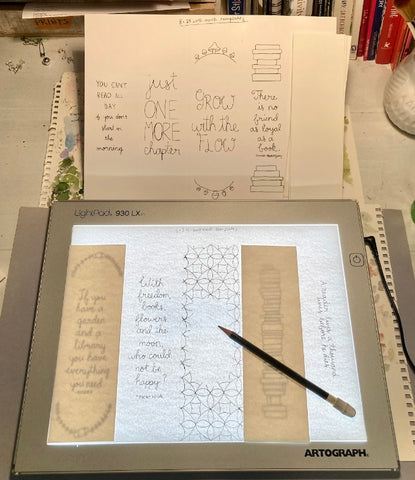 YOU CAN'T
READ ALL
DAY
if you don't
start in
the
morning
just
ONE
MORE
chapter
GROW
with the
FLOW
There
is no
friend
as loyal
as a
book.
LightPad 930 LX
If you
have a
garden
and a
library
you have
everything
you need
With
freedom,
books,
flowers
and the
moon,
who could
not be
happy
A reader lives a thousand
lives before he dies
ARTOGRAPH